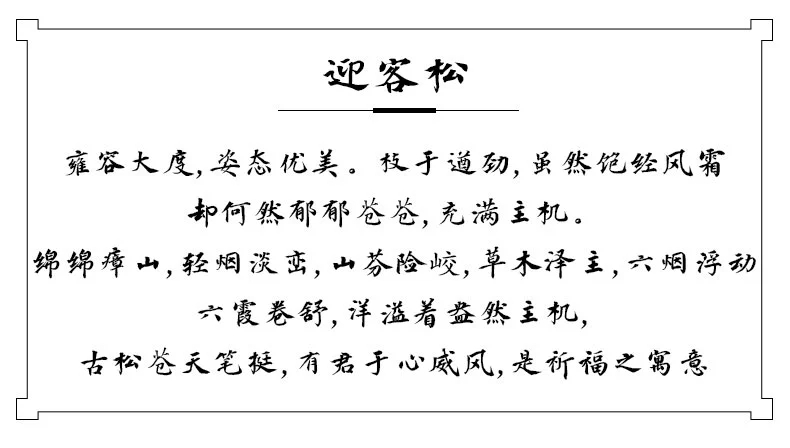 迎客松
雍容大度,姿态优美。枝于遒劲,虽然饱经风霜
却何然郁郁苍苍,充满主机。
绵绵瘴山,轻烟淡峦,山芬险峧,草木泽主,六烟浮动
六霞卷舒,洋溢着盎然主机,
古松苍天笔挺,有君于心威风,是祈福之寓意